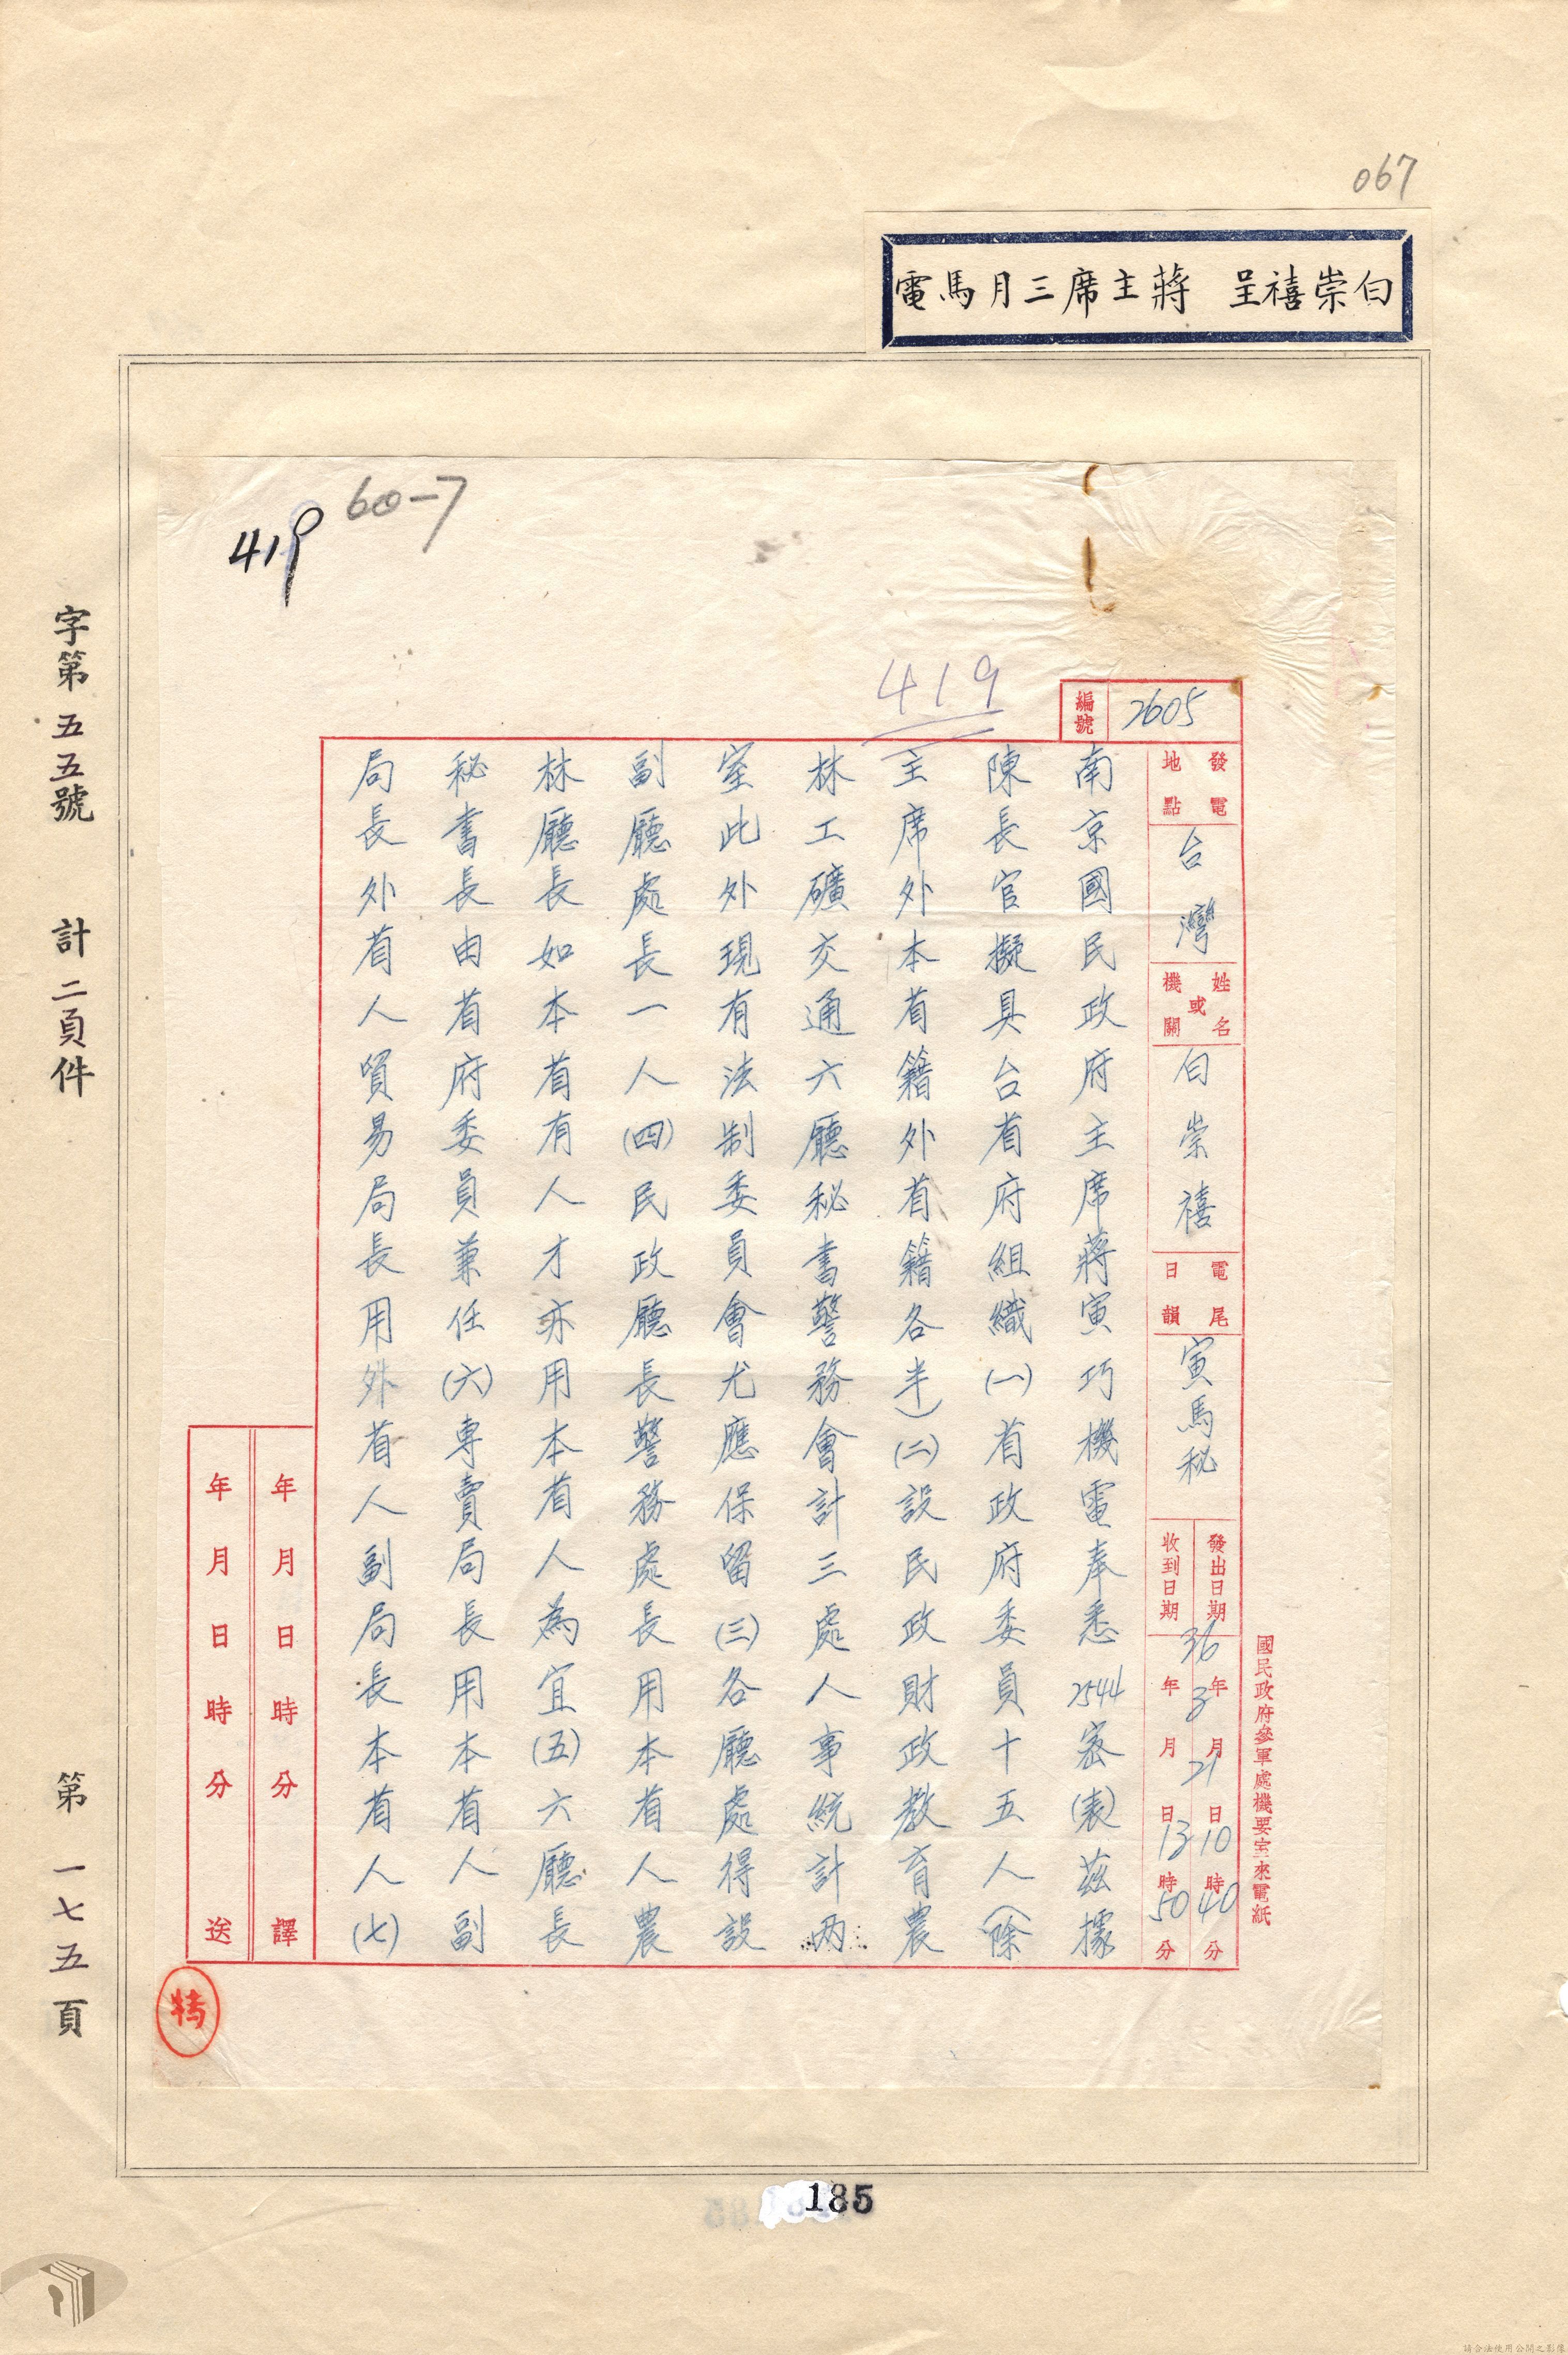 067
白崇禧呈 蔣主席三月馬電
60-7
419
419
編號 2605
發電地點 台灣
姓名或機關 白崇禧
電尾日韻 寅馬秘
發出日期 36年3月21日10時40分
收到日期 年月日13時50分
國民政府參軍處機要室來電紙
南京國民政府主席蔣寅巧機電奉悉2544密(表)茲據
陳長官擬具台省府組織(一)省政府委員十五人(除
主席外本省籍外省籍各半)(二)設民政財政教育農
林工礦交通六廳秘書警務會計三處人事統計兩
室此外現有法制委員會尤應保留(三)各廳處得設
副廳處長一人(四)民政廳長警務處長用本省人農
林廳長如本省有人才亦用本省人為宜(五)六廳長
秘書長由省府委員兼任(六)專賣局長用本省人副
局長外省人貿易局長用外省人副局長本省人(七)
年月日時分 譯
年月日時分 送
特
字第五五號 計二頁件 第一七五頁
185
請合法使用公開之影像